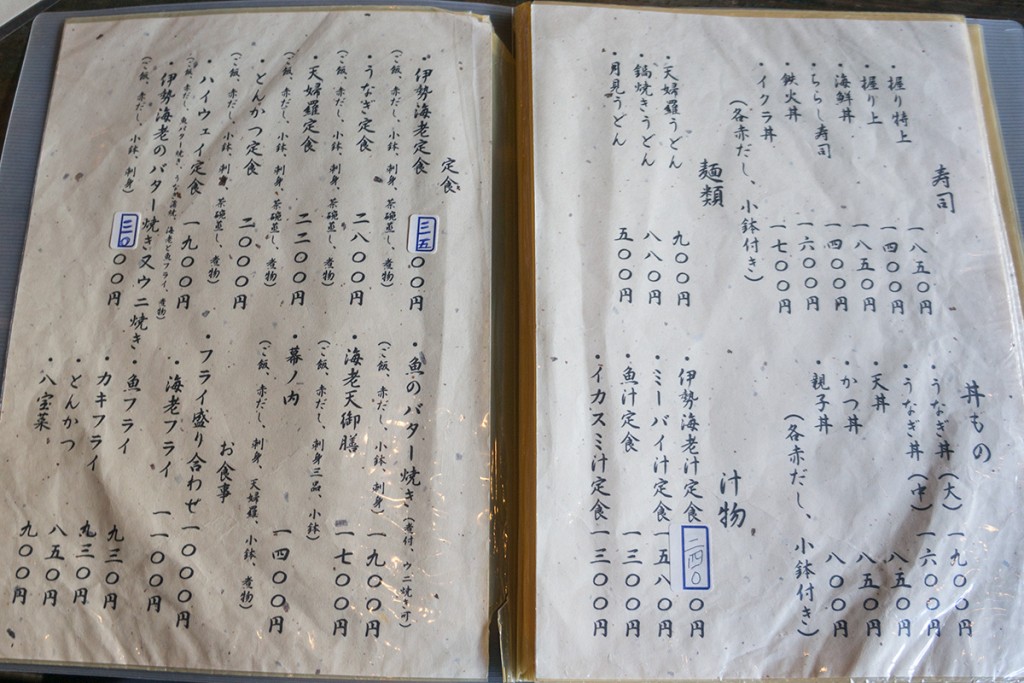 寿司
・握り特上 一八五〇円
・握り上 一四〇〇円
・海鮮丼 一八五〇円
・ちらし寿司 一四〇〇円
・鉄火丼 一六〇〇円
・イクラ丼 一七〇〇円
(各赤だし、小鉢付き)
麺類
・天婦羅うどん 九〇〇円
・鍋焼きうどん 八八〇円
・月見うどん 五〇〇円
丼もの
・うなぎ丼(大) 一九〇〇円
・うなぎ丼(中) 一六〇〇円
・天丼 八五〇円
・かつ丼 八五〇円
・親子丼 八〇〇円
(各赤だし、小鉢付き)
汁物
・伊勢海老汁定食 二四〇〇円
・ミーバイ汁定食 一五八〇円
・魚汁定食 一三〇〇円
・イカスミ汁定食 一三〇〇円
定食
・伊勢海老定食 三五〇〇円
(ご飯、赤だし、小鉢、刺身、茶碗蒸し、煮物)
・うなぎ定食 二八〇〇円
(ご飯、赤だし、小鉢、刺身、茶碗蒸し、煮物)
・天婦羅定食 二二〇〇円
(ご飯、赤だし、小鉢、刺身、茶碗蒸し、煮物)
・とんかつ定食 二〇〇〇円
(ご飯、赤だし、小鉢、刺身、茶碗蒸し、煮物)
・ハイウェイ定食 一九〇〇円
・伊勢海老のバター焼き又ウニ焼き 三〇〇〇円
(ご飯、赤だし、小鉢、刺身)
・魚のバター焼き(煮付、ウニ焼き可) 一九〇〇円
(ご飯、赤だし、小鉢、刺身)
・海老天御膳 一七〇〇円
(ご飯、赤だし、刺身三品、小鉢)
・幕ノ内 一四〇〇円
(ご飯、赤だし、刺身、天婦羅、小鉢、煮物)
お食事
・フライ盛り合わせ 一〇〇〇円
・海老フライ 一一〇〇円
・魚フライ 九三〇円
・カキフライ 九三〇円
・とんかつ 八五〇円
・八宝菜 九〇〇円